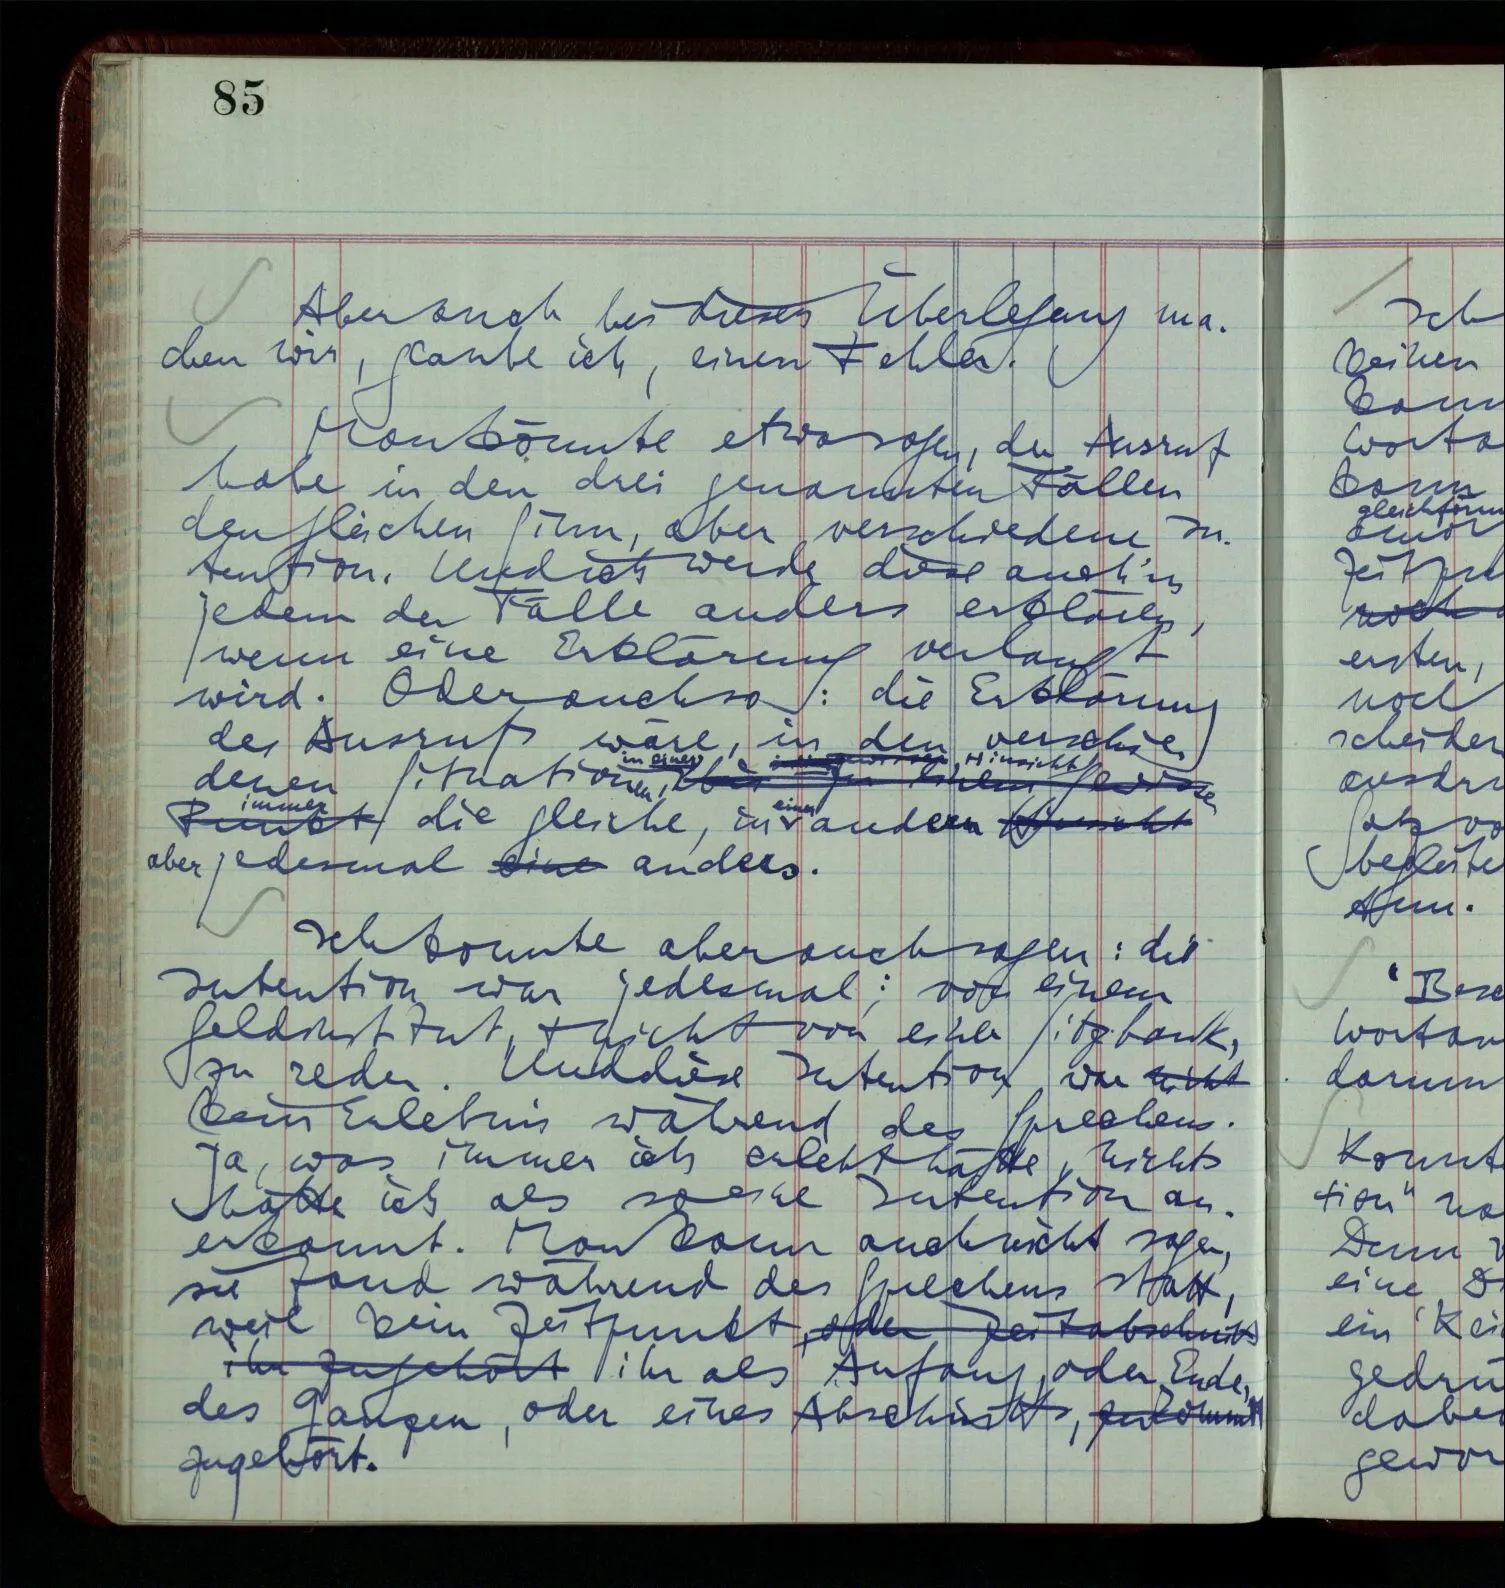 85
Aber auch bei dieser Überlegung ma-
chen wir, glaube ich, einen Fehler.
Man könnte etwa sagen, der Ausruf
habe in den drei genannten Fällen
den gleichen Sinn, aber verschiedene In-
tention. Und ich werde diese auch in
jedem der Fälle anders erklären,
wenn eine Erklärung verlangt
wird. Oder auch so: die Erklärung
des Ausrufs wäre, in den verschie-
in einer gewissen Hinsicht
denen Situationen, bis zu einem gewissen
immer einer
Punkt die gleiche, in andern Hinsicht
aber jedesmal eine anders.
Ich konnte aber auch sagen: die
Intention war jedesmal; von einem
Geldinstitut, + nicht von einer Sitzbank,
zu reden. Und diese Intention war nicht
kein Erlebnis während des Sprechens.
Ja, was immer ich erlebt hätte, nichts
hätte ich als solche Intention an-
erkannt. Man kann auch nicht sagen,
sie fand während des Sprechens statt,
weil kein Zeitpunkt, oder Zeitabschnitt
ihr zugehört ihr als Anfang, oder Ende,
des Ganzen, oder eines Abschnitts,
zugehört.
Ich
keinen
ersten,
noch
"Besc
darum
Konnt
tion" na
Denn
eine D
ein 'Kei
gedrü
dabei
gewor